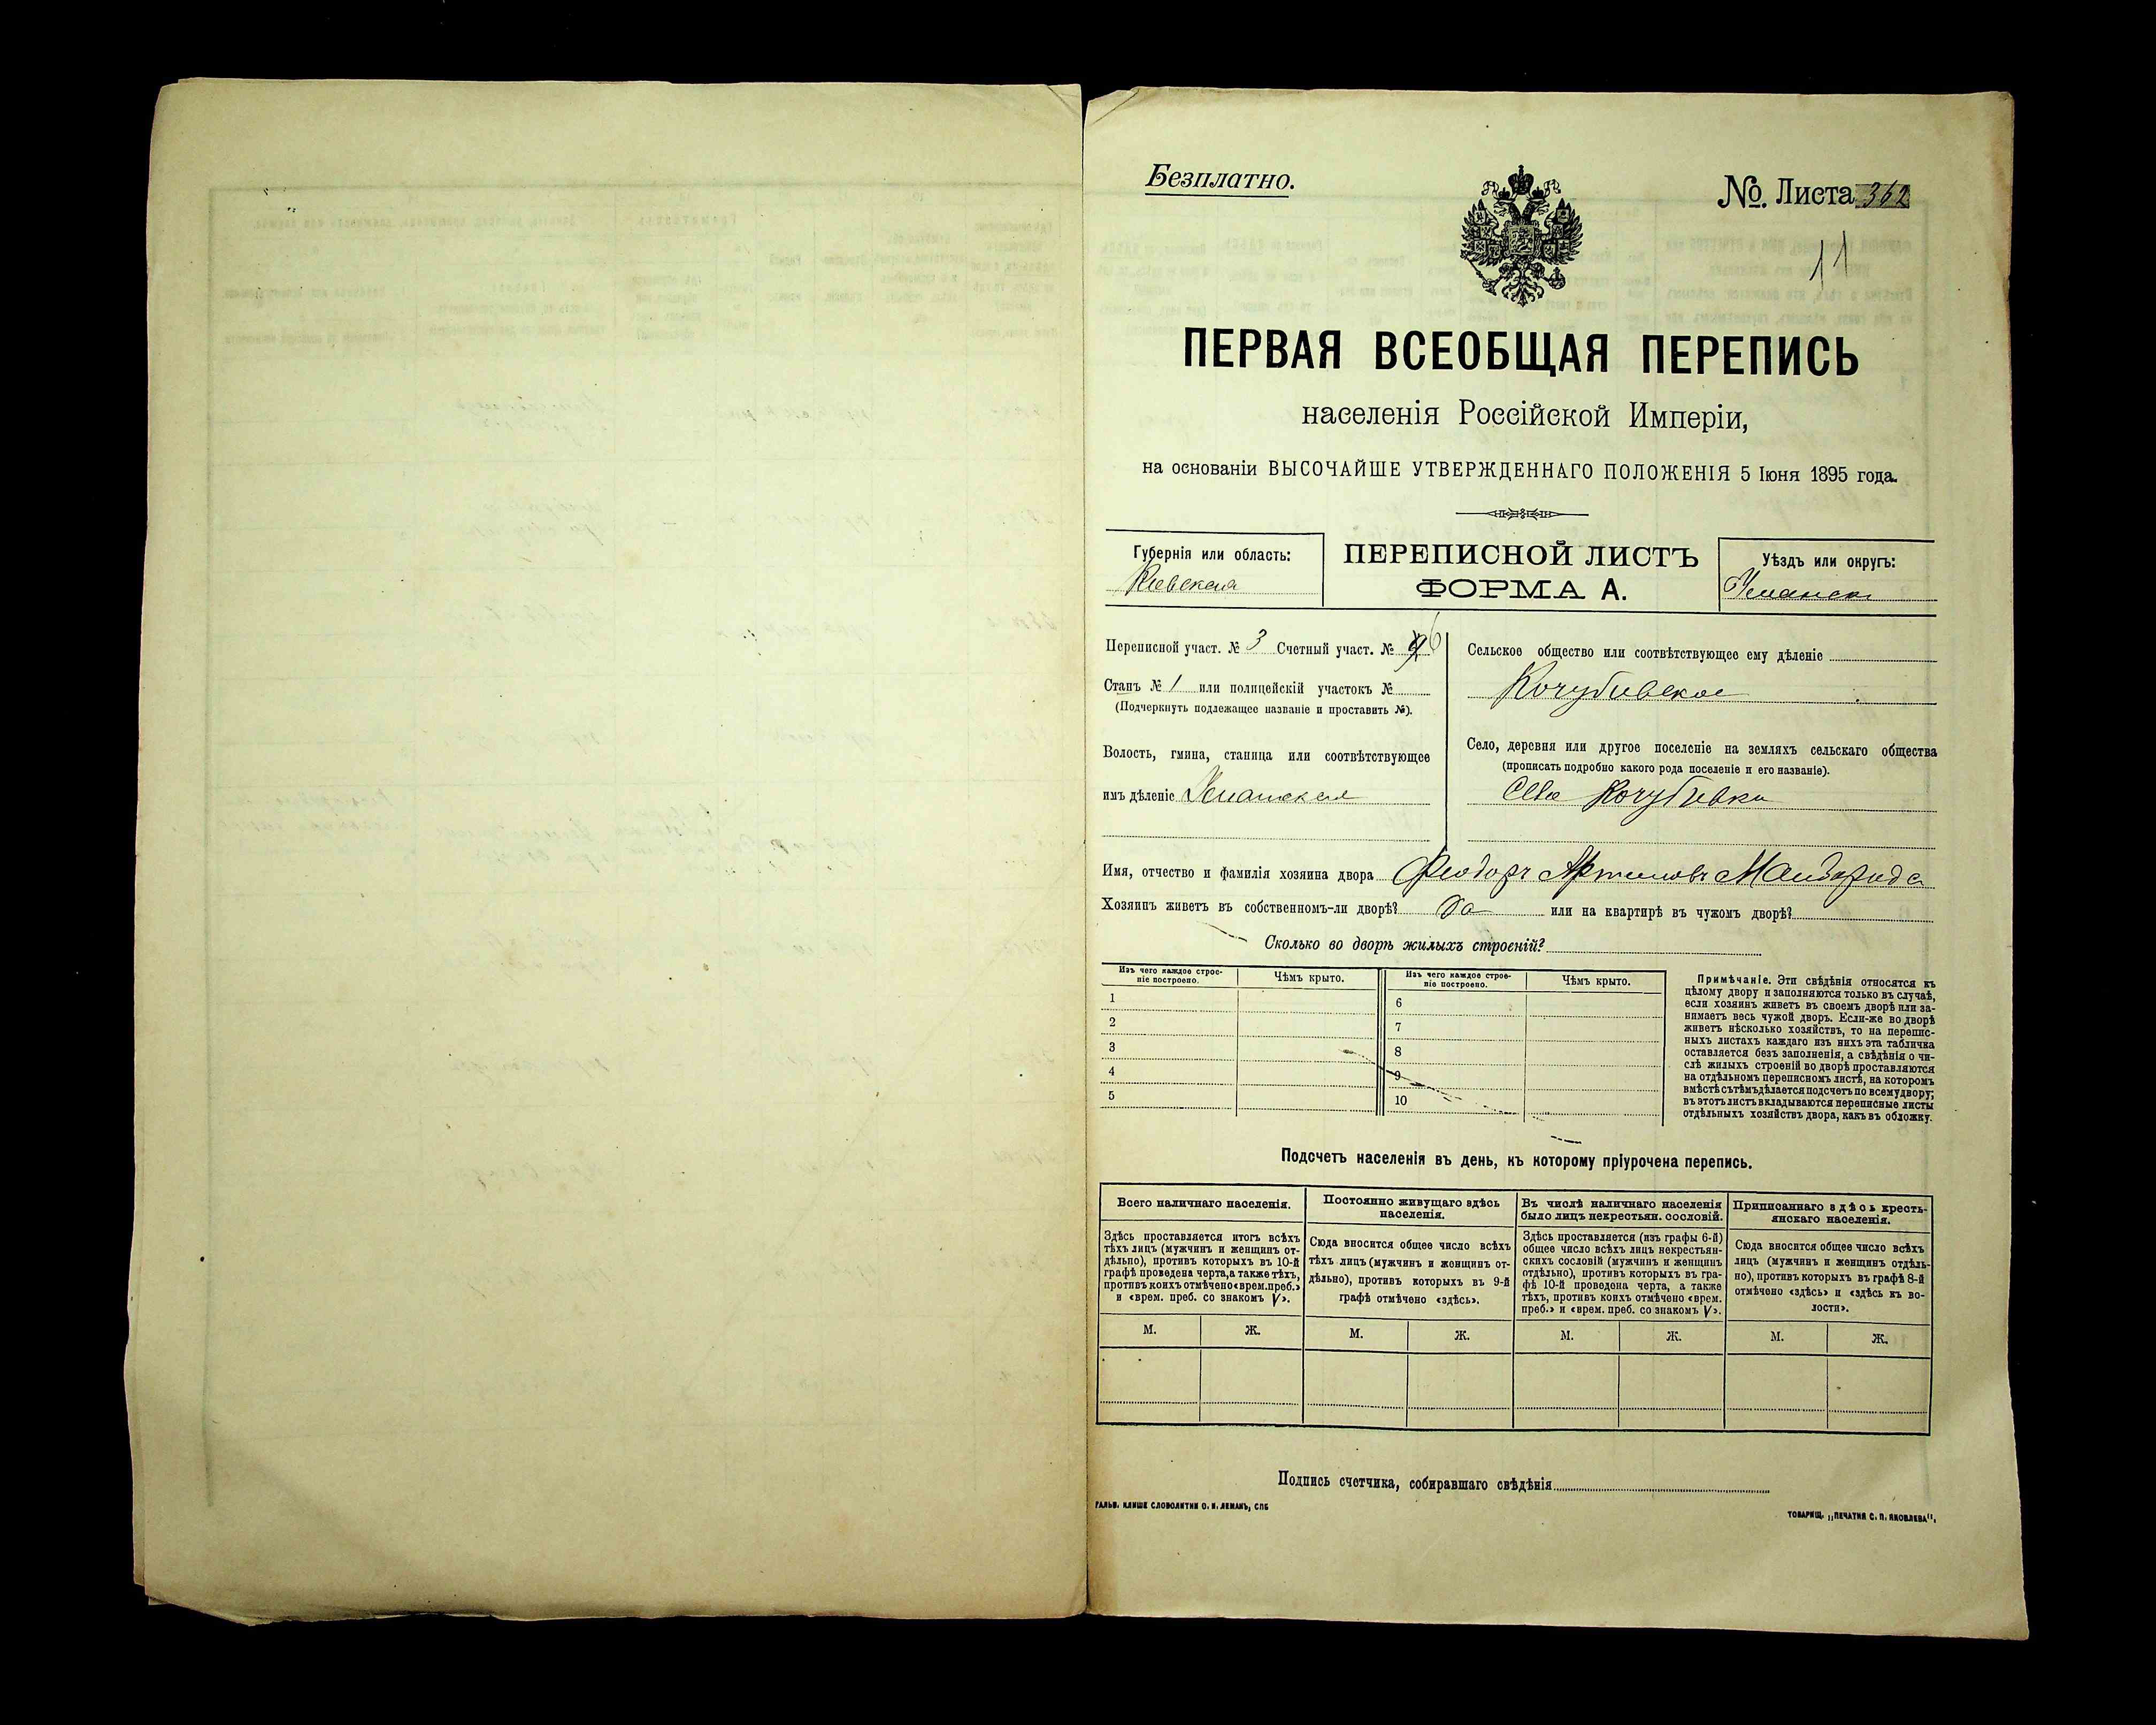 Безплатно.
№. Листа 362
11
ПЕРВАЯ ВСЕОБЩАЯ ПЕРЕПИСЬ
населенія Россійской Имперіи,
на основаніи ВЫСОЧАЙШЕ УТВЕРЖДЕННАГО ПОЛОЖЕНІЯ 5 Іюня 1895 года.
Губернія или область:
Киевская
ПЕРЕПИСНОЙ ЛИСТЪ
ФОРМА А.
Уѣздъ или округъ:
Уманск
Переписной участ. № 3 Счетный участ. № 6
Станъ № 1 или полицейскій участокъ №
(Подчеркнуть подлежащее названіе и проставить №).
Волость, гмина, станица или соотвѣтствующее
имъ дѣленіе Уманская
Сельское общество или соотвѣтствующее ему дѣленіе
Кочубивское
Село, деревня или другое поселеніе на земляхъ сельскаго общества
(прописать подробно какого рода поселеніе и его названіе).
Село Кочубивка
Имя, отчество и фамилія хозяина двора Феодоръ Артемовъ
Хозяинъ живетъ въ собственномъ-ли дворѣ? да или на квартирѣ въ чужомъ дворѣ?
Сколько во дворѣ жилыхъ строеній?
Изъ чего каждое строе-
ніе построено.
Чѣмъ крыто.
1
2
3
4
5
Изъ чего каждое строе-
ніе построено.
Чѣмъ крыто.
6
7
8
9
10
Примѣчаніе. Эти свѣдѣнія относятся къ
цѣлому двору и заполняются только въ случаѣ,
если хозяинъ живетъ въ своемъ дворѣ или за-
нимаетъ весь чужой дворъ. Если-же во дворѣ
живетъ нѣсколько хозяйствъ, то на перепис-
ныхъ листахъ каждаго изъ нихъ эта табличка
оставляется безъ заполненія, а свѣдѣнія о чи-
слѣ жилыхъ строеній во дворѣ проставляются
на отдѣльномъ переписномъ листѣ, на которомъ
вмѣстѣ съ тѣмъ дѣлается подсчетъ по всему двору;
въ этотъ листъ вкладываются переписные листы
отдѣльныхъ хозяйствъ двора, какъ въ обложку.
Подсчетъ населенія въ день, къ которому пріурочена перепись.
Всего наличнаго населенія.
Здѣсь проставляется итогъ всѣхъ
тѣхъ лицъ (мужчинъ и женщинъ от-
дѣльно), противъ которыхъ въ 10-й
графѣ проведена черта, а также тѣхъ,
противъ коихъ отмѣчено «врем. преб.»
и «врем. преб. со знакомъ V».
М. Ж.
Постоянно живущаго здѣсь
населенія.
Сюда вносится общее число всѣхъ
тѣхъ лицъ (мужчинъ и женщинъ от-
дѣльно), противъ которыхъ въ 9-й
графѣ отмѣчено «здѣсь».
М. Ж.
Въ числѣ наличнаго населенія
было лицъ некрестьян. сословій.
Здѣсь проставляется (изъ графы 6-й)
общее число всѣхъ лицъ некрестьян-
скихъ сословій (мужчинъ и женщинъ
отдѣльно), противъ которыхъ въ гра-
фѣ 10-й проведена черта, а также
тѣхъ, противъ коихъ отмѣчено «врем.
преб.» и «врем. преб. со знакомъ V».
М. Ж.
Приписаннаго здѣсь кресть-
янскаго населенія.
Сюда вносится общее число всѣхъ
лицъ (мужчинъ и женщинъ отдѣль-
но), противъ которыхъ въ графѣ 8-й
отмѣчено «здѣсь» и «здѣсь къ во-
лости».
М. Ж.
Подпись счетчика, собиравшаго свѣдѣнія
ГАЛЬВ. КЛИШЕ СЛОВОЛИТНИ О. И. ЛЕМАНЪ, СПБ
ТОВАРИЩ. „ПЕЧАТНЯ С. П. ЯКОВЛЕВА".